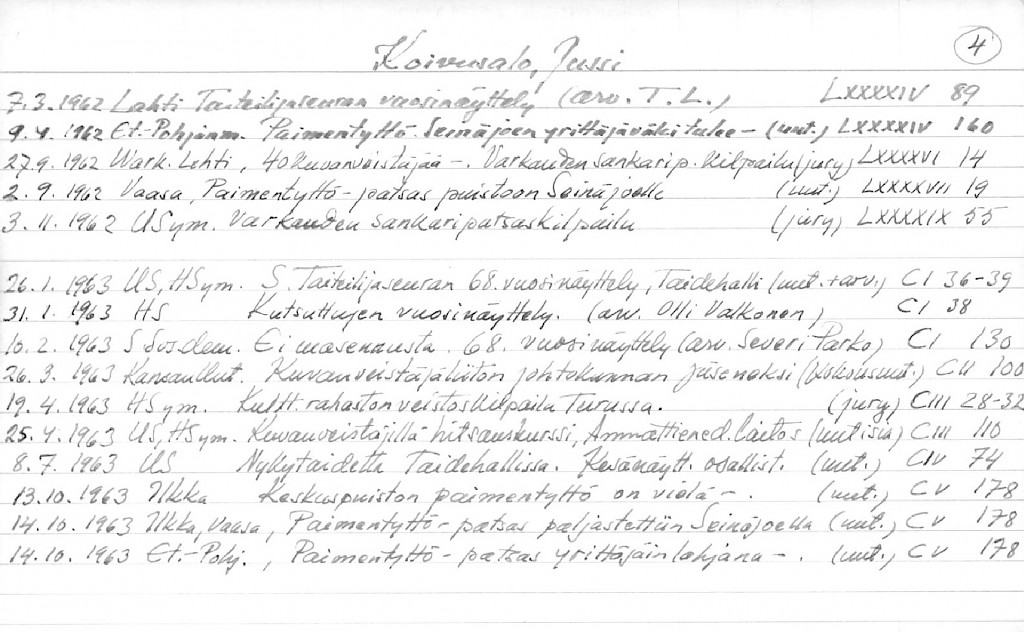 4
Koivusalo, Jussi
7.3.1962 Lahti Taiteilijaseuran vuosinäyttely (arv. T.L.) LXXXXIV 89
9.4.1962 Et.-Pohjanm. Paimentyttö Seinäjoen yrittäjäväki tulee - (uut.) LXXXXIV 160
27.9.1962 Wark. Lehti, 40 kuvanveistäjää -. Varkauden sankarip. kilpailu (jury) LXXXXVI 14
2.9.1962 Vaasa, Paimentyttö-patsas puistoon Seinäjoelle (uut.) LXXXXVII 19
3.11.1962 USym. Varkauden sankaripatsaskilpailu (jury) LXXXXIX 55
26.1.1963 US, HSym. S. Taiteilijaseuran 68. vuosinäyttely, Taidehalli (uut. + arv.) CI 36-39
31.1.1963 HS Kutsuttujen vuosinäyttely. (arv. Olli Valkonen) CI 38
10.2.1963 S Sos.dem. Ei masennusta. 68. vuosinäyttely (arv. Severi Parko) CI 130
26.3.1963 Kansanuut. Kuvanveistäjäliiton johtokunnan jäseneksi (kokousuut.) CII 100
19.4.1963 HSym. Kultt.rahaston veistoskilpailu Turussa. (jury) CIII 28-32
25.4.1963 US, HSym. Kuvanveistäjillä hitsauskurssi, Ammattiened. laitos (uutisia) CIII 110
8.7.1963 US Nykytaidetta Taidehallissa. Kesänäytt. osallist. (uut.) CIV 74
13.10.1963 Ilkka Keskuspuiston paimentyttö on vielä -. (uut.) CV 178
14.10.1963 Ilkka, Vaasa, Paimentyttö-patsas paljastettiin Seinäjoella (uut.) CV 178
14.10.1963 Et.-Pohj., Paimentyttö-patsas yrittäjäin lahjana -. (uut.) CV 178